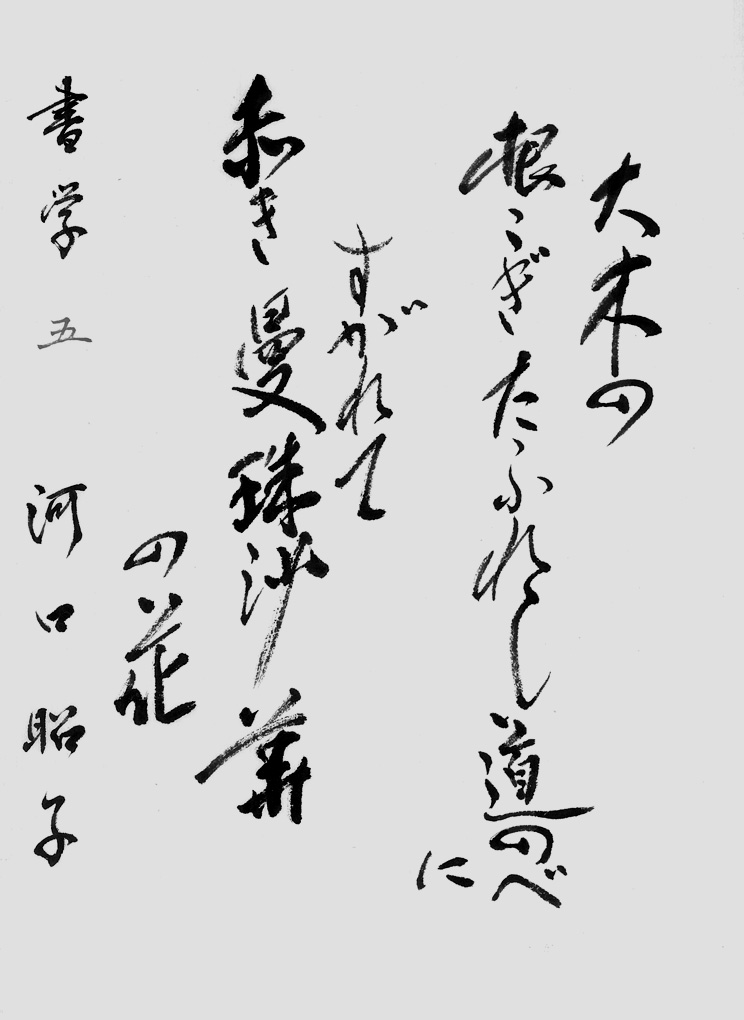 大木の
根こぎたふれし道のべ
に
すがれて
赤き曼珠沙華
の花
書学 五 河口昭子